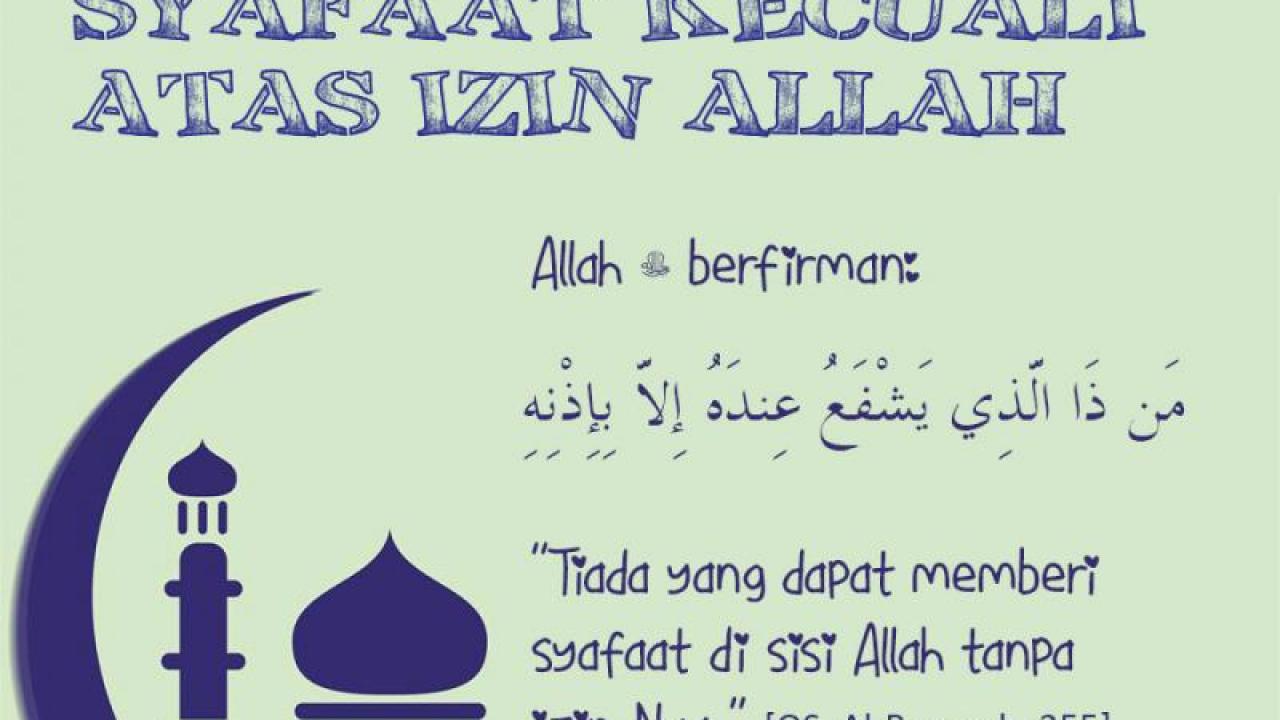 SYAFAAT KECUALI
ATAS IZIN ALLAH
Allah ﷻ berfirman:
مَن ذَا الَّذِي يَشْفَعُ عِندَهُ إِلاَّ بِإِذْنِهِ
"Tiada yang dapat memberi
syafaat di sisi Allah tanpa
izin-Nya." [QS. Al-Baqarah: 255]